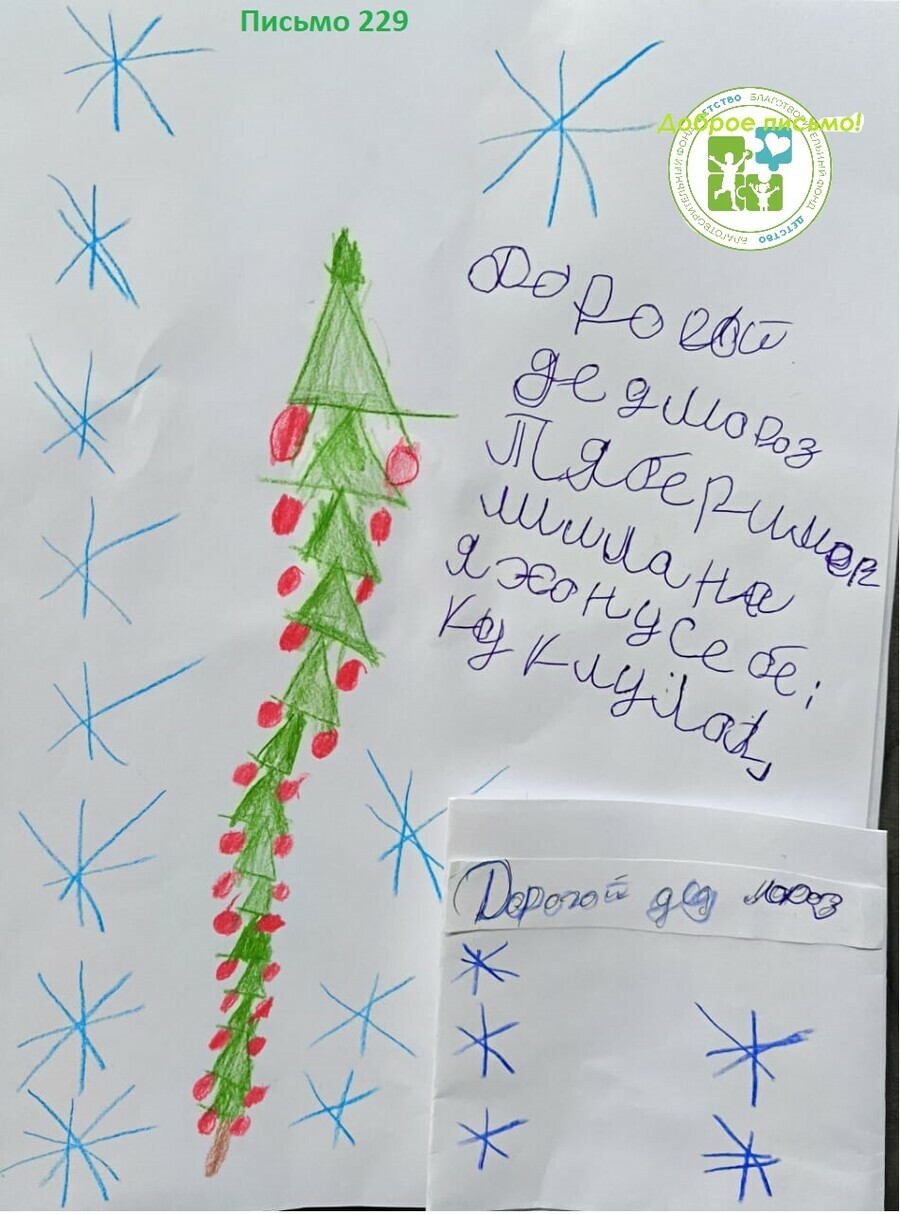 Письмо 229
Доброе письмо!
БЛАГОТВОРИТЕЛЬНЫЙ ФОНД ДЕТСТВО БЛАГОТВОРИТЕЛЬНЫЙ ФОНД ДЕТСТВО
Дорогой
дедмороз
милана
я хочу себе
куклу
Дорогой дед мороз